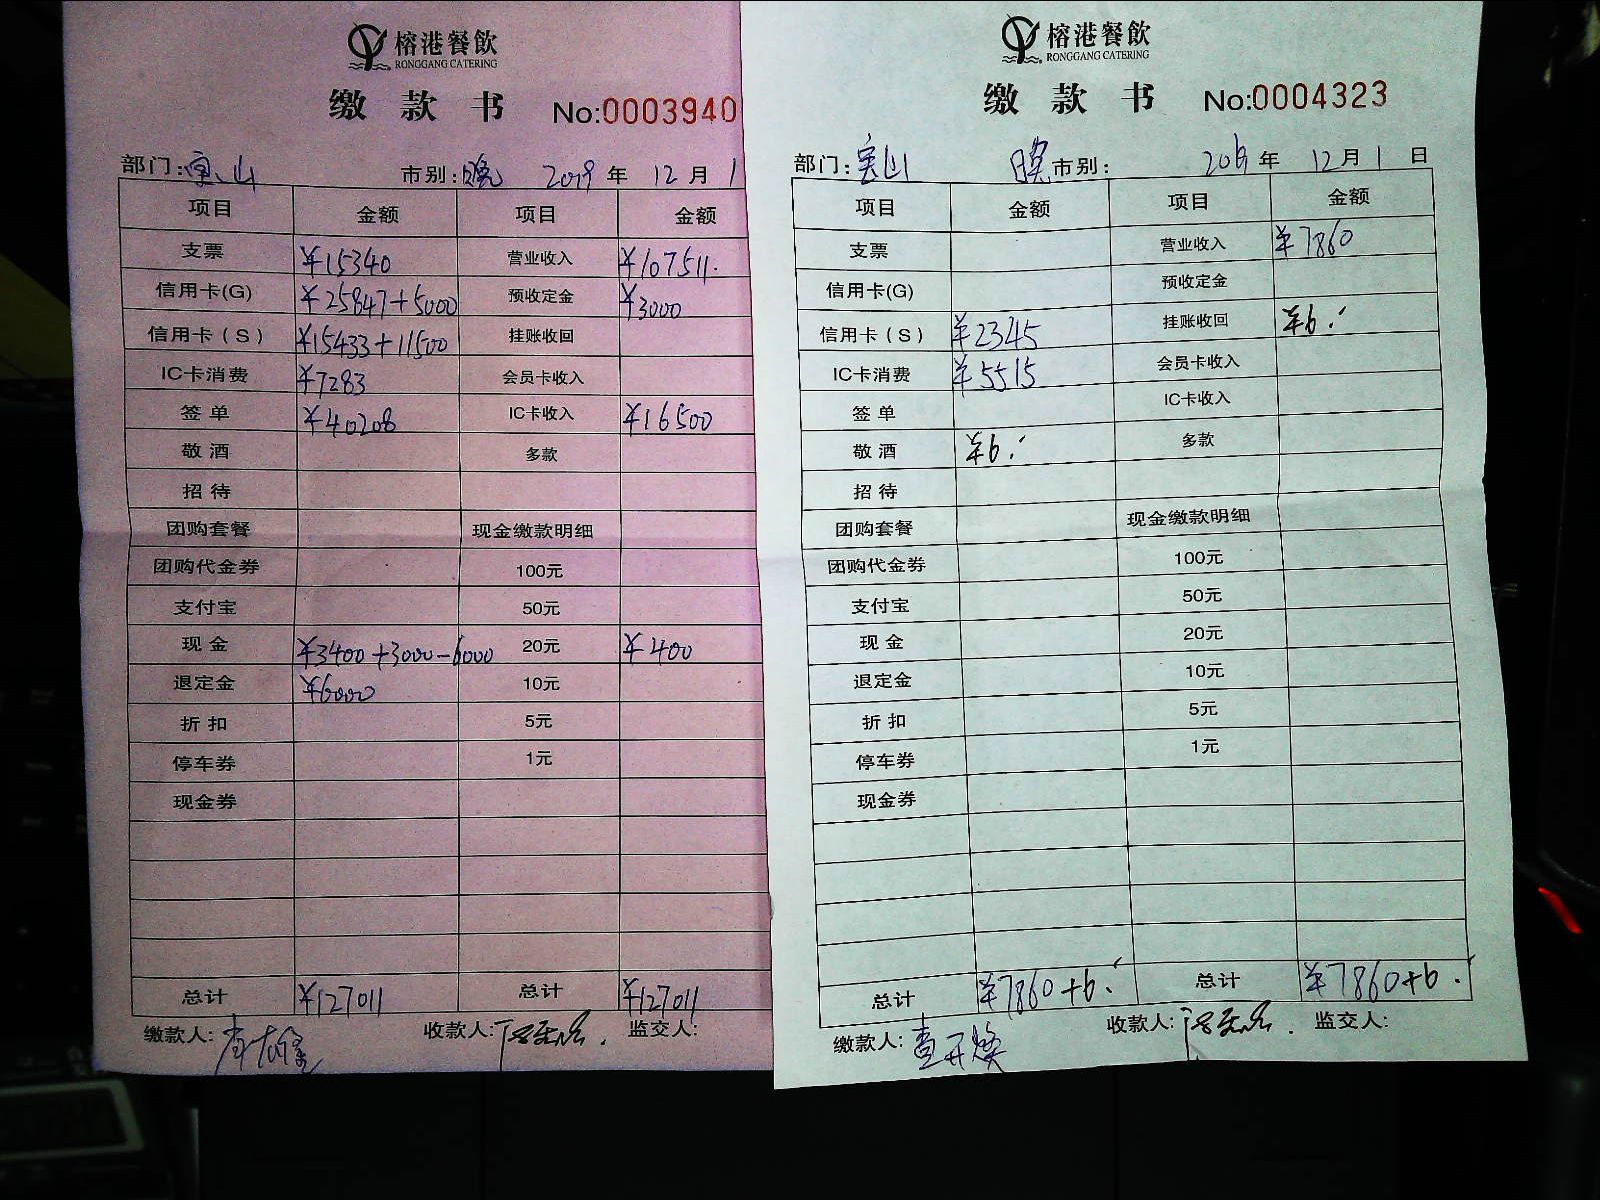 榕港餐飲
RONGGANG CATERING
缴款书 No:0003940
部门:宝山 市别:晚 2019年 12月 1
项目 金额 项目 金额
支票 ¥15340 营业收入 ¥107511.
信用卡(G) ¥25847+5000 预收定金 ¥3000
信用卡（S） ¥15433+11500 挂账收回
IC卡消费 ¥7283 会员卡收入
签单 ¥40208 IC卡收入 ¥16500
敬酒 多款
招待
团购套餐 现金缴款明细
团购代金券 100元
支付宝 50元
现金 ¥3400+3000-6000 20元 ¥400
退定金 ¥6000 10元
折扣 5元
停车券 1元
现金券
总计 ¥127011 总计 ¥127011
缴款人: 收款人: 监交人:
榕港餐飲
RONGGANG CATERING
缴款书 No:0004323
部门:宝山 市别: 2019年 12月 1日
项目 金额 项目 金额
支票 营业收入 ¥7860
信用卡(G) 预收定金
信用卡（S） ¥2345 挂账收回 ¥6.
IC卡消费 ¥5515 会员卡收入
签单 IC卡收入
敬酒 ¥6. 多款
招待
团购套餐 现金缴款明细
团购代金券 100元
支付宝 50元
现金 20元
退定金 10元
折扣 5元
停车券 1元
现金券
总计 ¥7860+6. 总计 ¥7860+6.
缴款人: 收款人: 监交人: